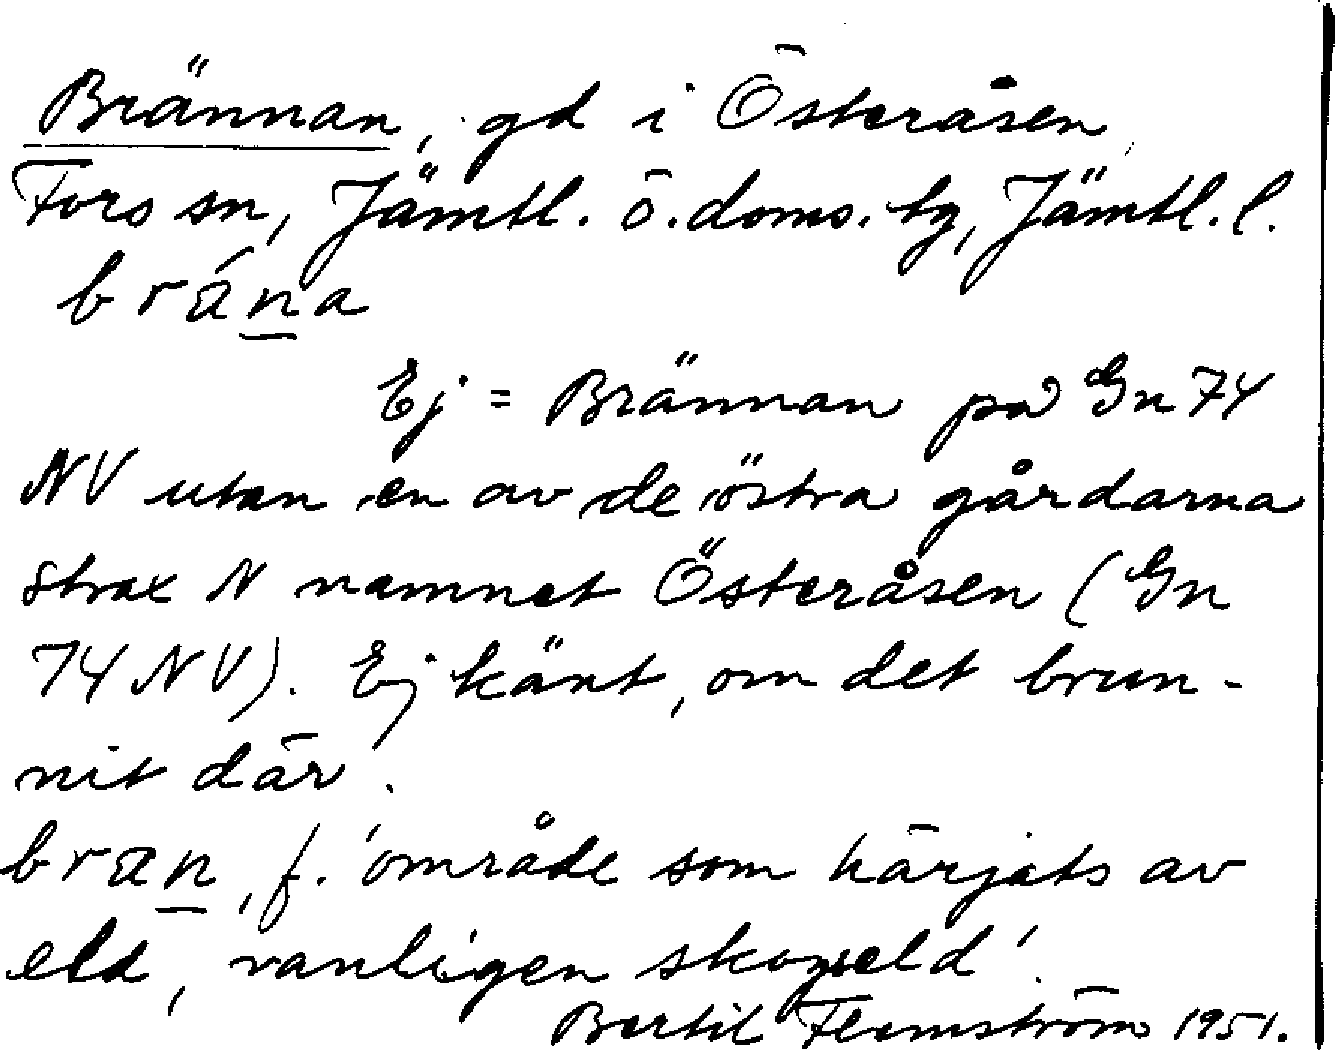 Brännan, gd i Österåsen
Fors sn, Jämtl. ö. doms. tg, Jämtl. l.
brána
Ej = Brännan på Gn 74
NV utan en av de östra gårdarna
strax N namnet Österåsen (Gn
74 NV). Ej känt, om det brun-
nit där.
bran, f. 'område som härjats av
eld, vanligen skogseld'.
Bertil Flemström 1951.